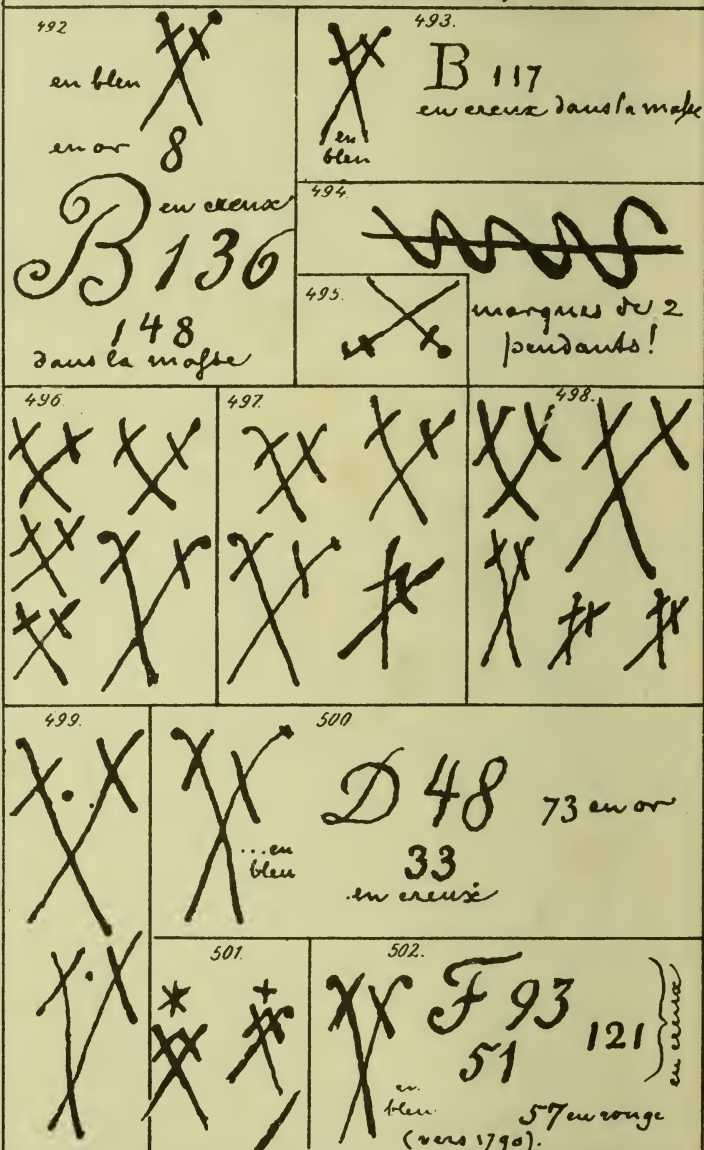 492
en bleu
en or 8
B en creux
136
148
dans la masse
493.
B 117
en creux dans la masse
en
bleu
494.
marques de 2
pendants!
495.
496.
497.
498.
499.
500
...en
bleu
D 48
73 en or
33
en creux
501
502.
F 93
51
121
en creux
en
bleu.
57 en rouge
(vers 1790).